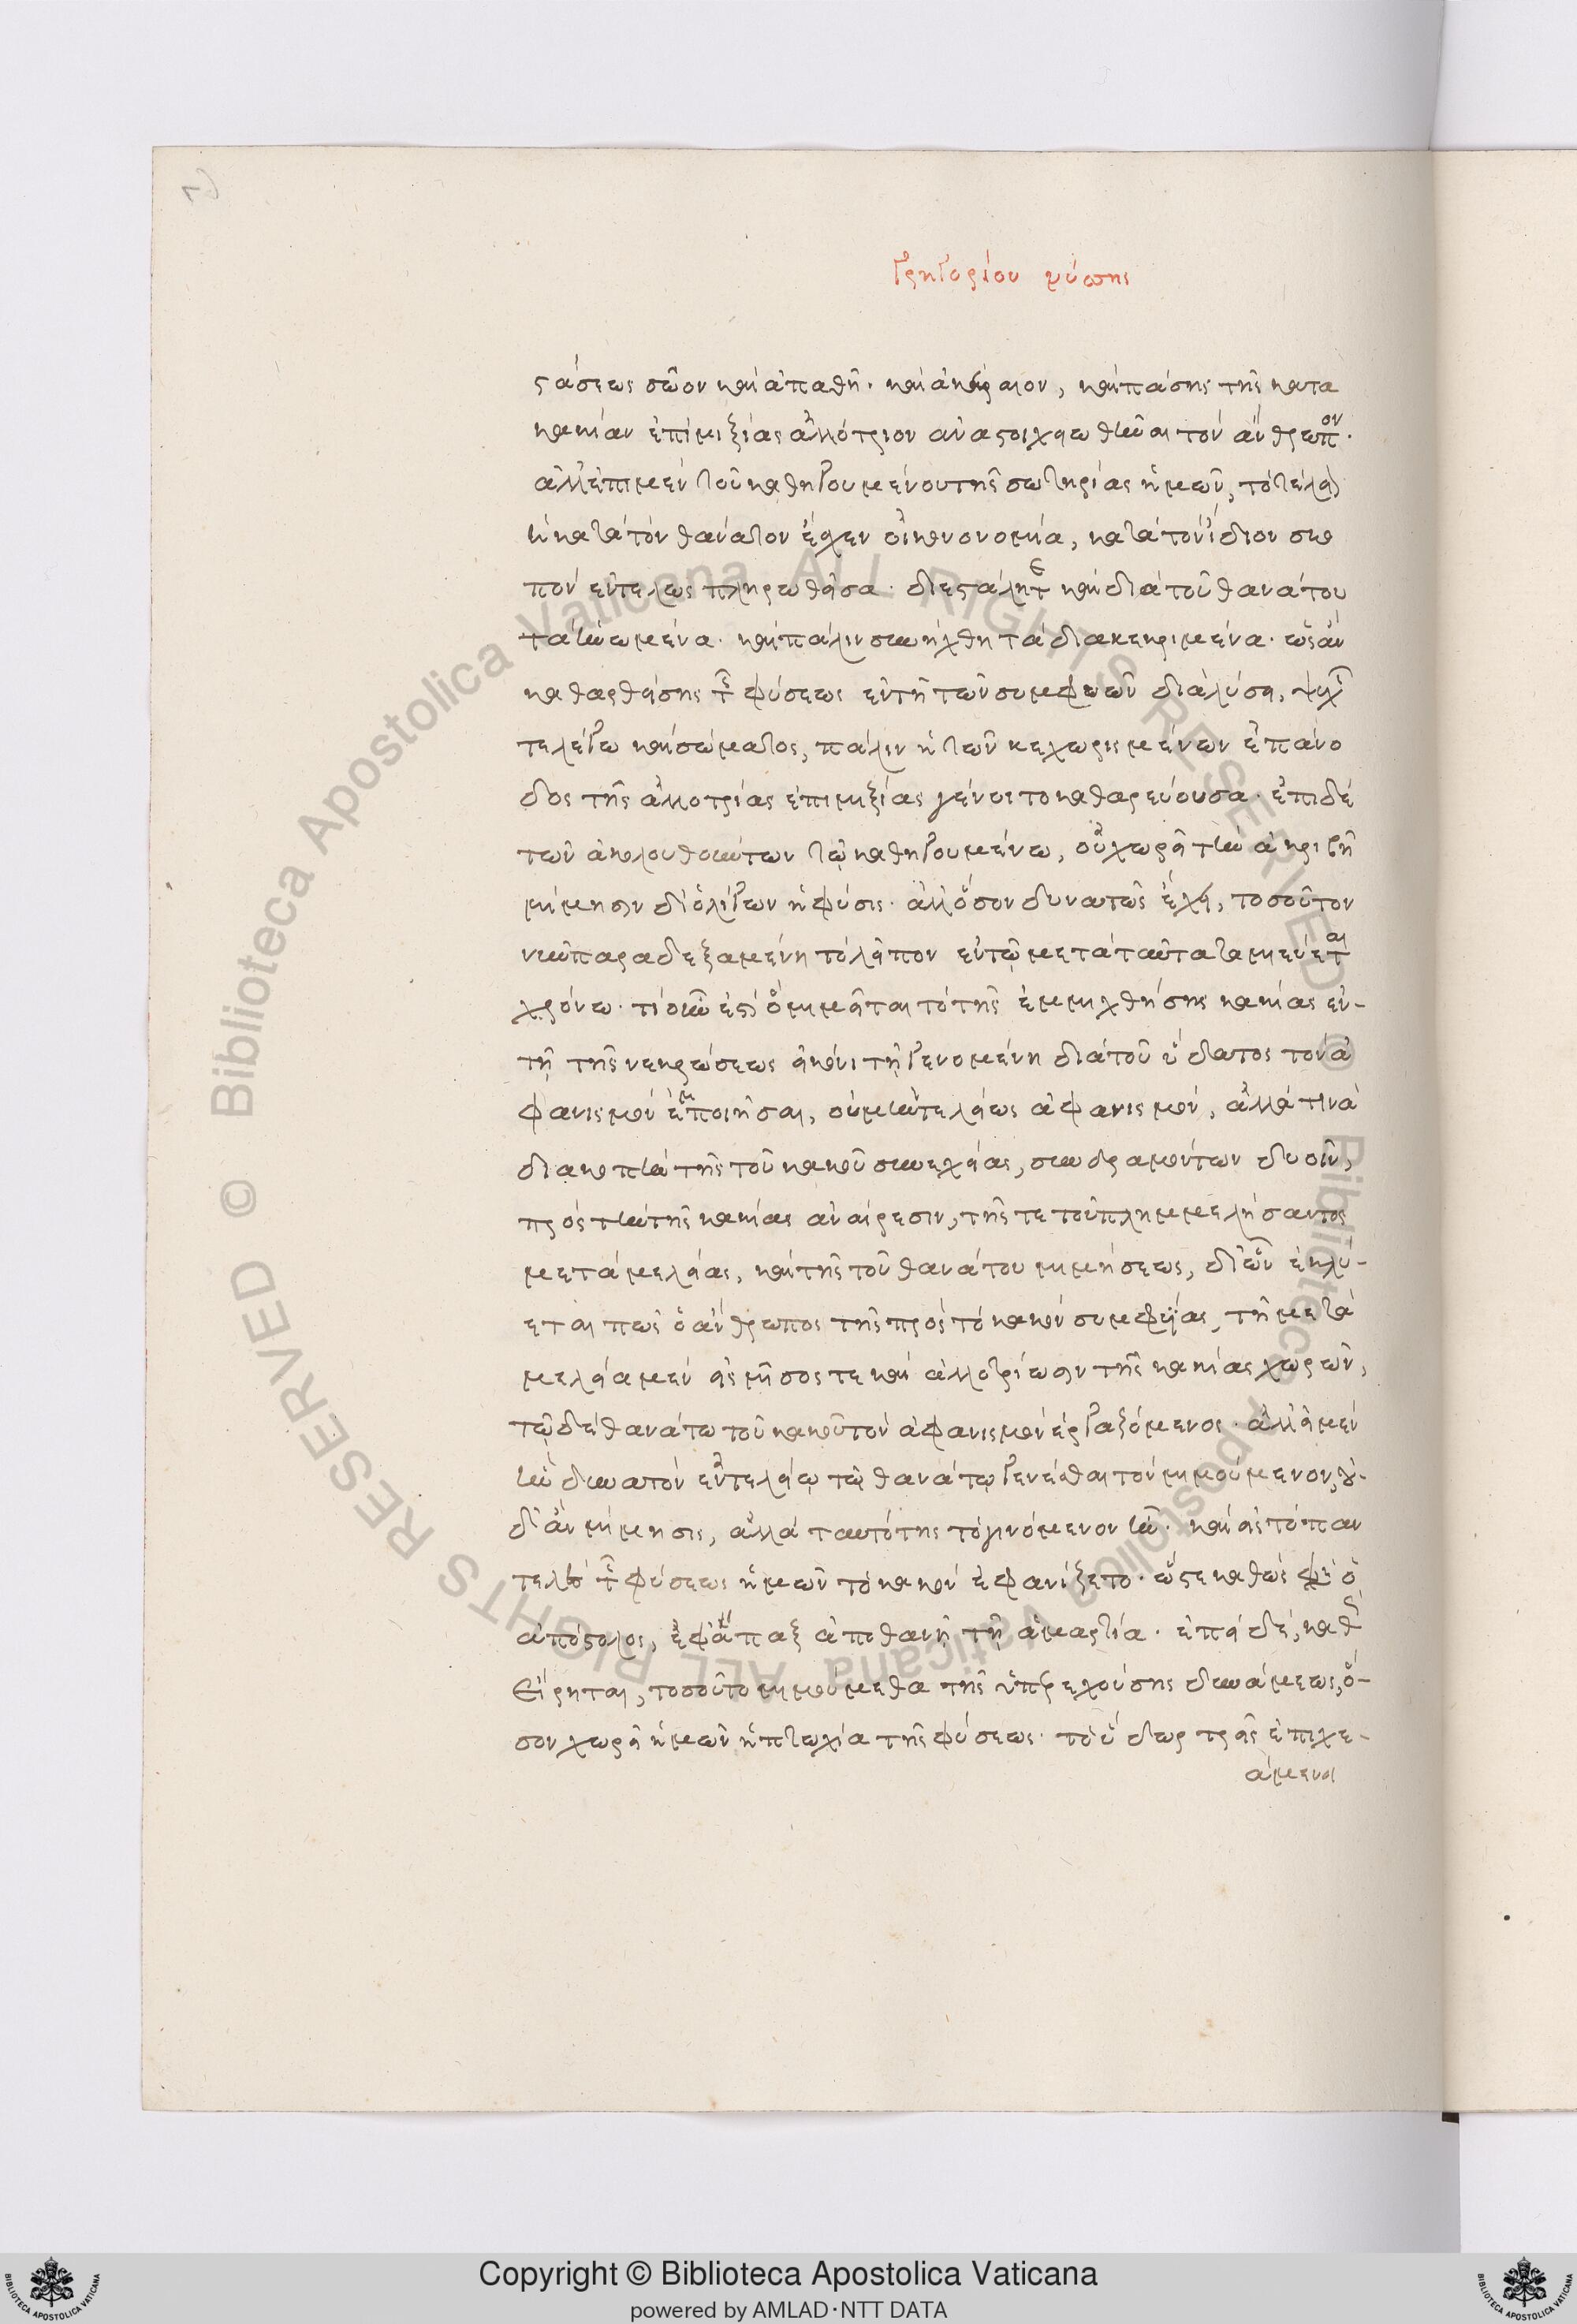 Γρηγορίου νύσσης
στάσεως σῶον καὶ ἀπαθῆ· καὶ ἀκέραιον, καὶ πάσης τῆς κατὰ
κακίαν ἐπιμιξίας ἀλλότριον ἀναστοιχειωθῆναι τὸν ἄνθρωπον.
ἀλλ' ἐπὶ μὲν τοῦ καθηγουμένου τῆς σωτηρίας ἡμῶν, τὸ τέλειον
ἡ κατὰ τὸν θάνατον ἔσχεν οἰκονομία, κατὰ τὸν ἴδιον σκο
πὸν ἐντελῶς πληρωθεῖσα· διεστάλη τε καὶ διὰ τοῦ θανάτου
τὰ ἡνωμένα· καὶ πάλιν συνήχθη τὰ διακεκριμένα· ὡς ἂν
καθαρθείσης τῆς φύσεως ἐν τῇ τῶν συμφυῶν διαλύσει, ψυχῆς
τε λέγω καὶ σώματος, πάλιν ἡ τῶν κεχωρισμένων ἐπάνο
δος τῆς ἀλλοτρίας ἐπιμιξίας γένοιτο καθαρεύουσα· ἐπὶ δὲ
τῶν ἀκολουθούντων τῷ καθηγουμένω, οὐ χωρεῖ τὴν ἀκριβῆ
μίμησιν δι' ὀλίγων ἡ φύσις· ἀλλ' ὅσον δυνατῶς ἔχει, τοσοῦτον
νῦν παραδεξαμένη τὸ λεῖπον ἐν τῷ μετὰ ταῦτα ταμιεύεται
χρόνω· τί οὖν ἐστὶ ὃ μιμεῖται τὸ τῆς ἐμμιχθήσης κακίας ἐν-
τῇ τῆς νεκρώσεως εἰκόνι τῇ γενομένη διὰ τοῦ ὕδατος τὸν ἀ
φανισμὸν ἐμποιῆσαι, οὐ μὴν τελείως ἀφανισμὸν, ἀλλά τινα
διακοπὴν τῆς τοῦ κακοῦ συνεχείας, συνδραμόντων δυοῖν,
πρὸς τὴν τῆς κακίας ἀναίρεσιν, τῆς τε τοῦ πλημμελήσαντος
μεταμελείας, καὶ τῆς τοῦ θανάτου μιμήσεως, δι' ὧν ἐκλύ-
εται πως ὁ ἄνθρωπος τῆς πρὸς τὸ κακὸν συμφυΐας, τῇ μετα
μελεία μὲν εἰς μῖσος τε καὶ ἀλλοτρίωσιν τῆς κακίας χωρῶν,
τῷ δὲ θανάτω τοῦ κακοῦ τὸν ἀφανισμὸν ἐργαζόμενος· ἀλλ' εἰ μὲν
ἦν δυνατὸν ἐν τελείῳ τῷ θανάτῳ γενέσθαι τὸν μιμούμενον, οὐ-
δ' ἂν μίμησις, ἀλλὰ ταυτότης τὸ γινόμενον ἦν· καὶ εἰς τὸ παν
τελὲς τῆς φύσεως ἡμῶν τὸ κακὸν ἠφανίζετο· ὥστε καθὼς φησὶ ὁ
ἀπόστολος, ἐφάπαξ ἀποθανῇ τῇ ἁμαρτία· ἐπεὶ δὲ, καθὼς
Εἴρηται, τοσοῦτο μιμούμεθα τῆς ὑπερεχούσης δυνάμεως, ὅ-
σον χωρεῖ ἡμῶν ἡ πτωχία τῆς φύσεως· τὸ ὕδωρ τρεῖς ἐπιχε-
άμενοι